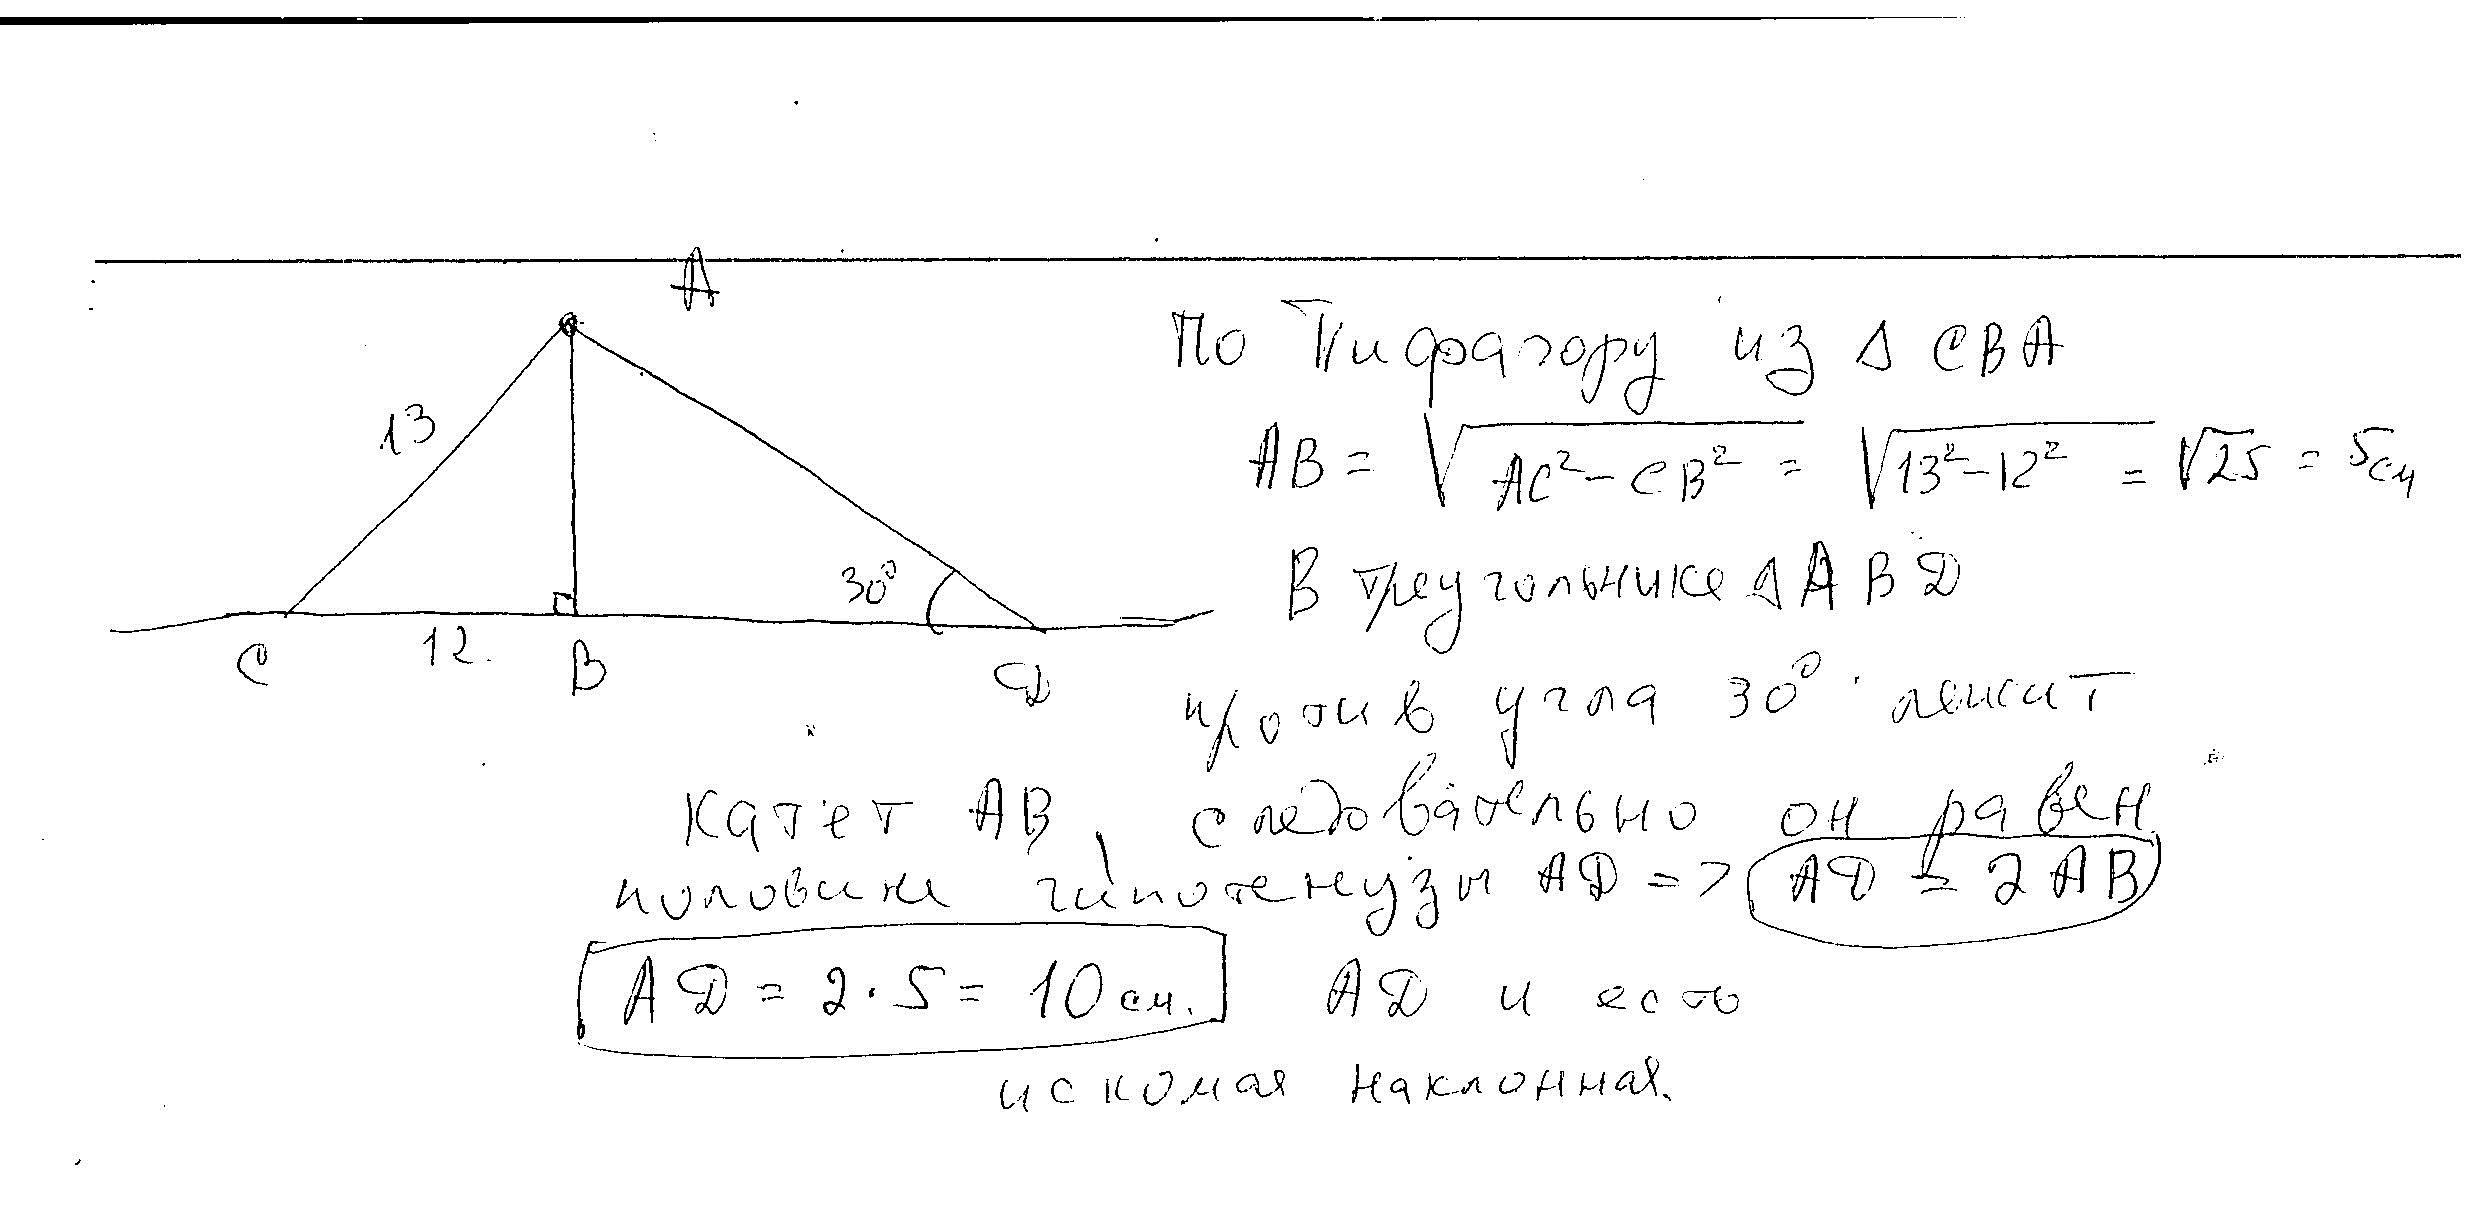 A
13
30°
C 12. B D
По Пифагору из Δ CBA
AB = √AC² - CB² = √13² - 12² = √25 = 5см
В треугольнике Δ ABD
против угла 30° лежит
катет AB, следовательно он равен
половине гипотенузы AD => AD = 2AB
AD = 2 · 5 = 10 см. AD и есть
искомая наклонная.